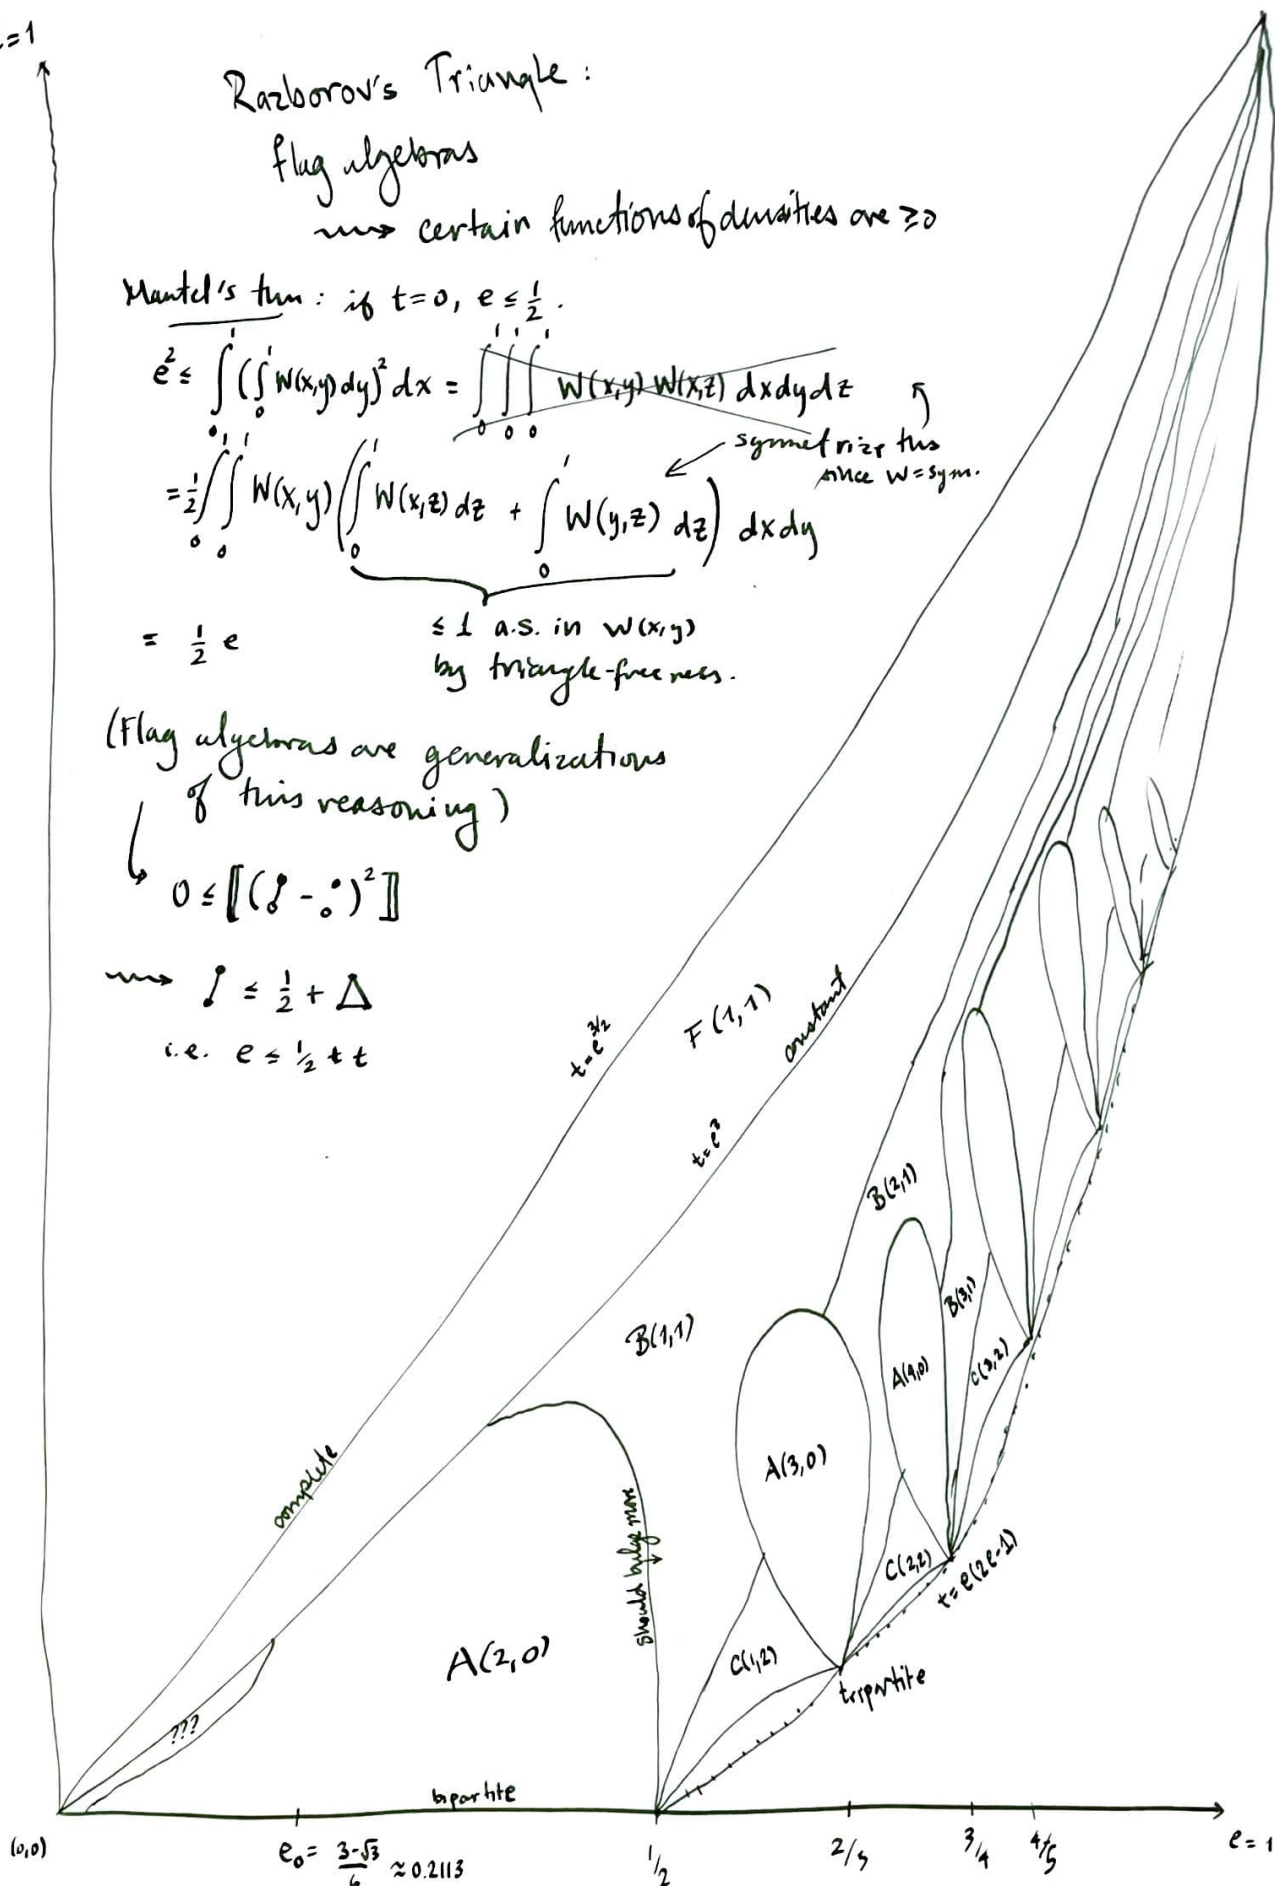 t=1
Razborov's Triangle :
flag algebras
⇝ certain functions of densities are ≥0
Mantel's thm : if t=0, e ≤ 1/2 .
e² ≤ ∫₀¹ (∫₀¹ W(x,y) dy)² dx = ∫₀¹∫₀¹∫₀¹ W(x,y) W(x,z) dxdydz
symmetrize this
since W=sym.
= 1/2 ∫₀¹∫₀¹ W(x,y) (∫₀¹ W(x,z) dz + ∫₀¹ W(y,z) dz) dxdy
≤ 1 a.s. in W(x,y)
by triangle-freeness.
= 1/2 e
(Flag algebras are generalizations
of this reasoning)
0 ≤ ⟦( - )²⟧
⇝ ≤ 1/2 + Δ
i.e. e ≤ 1/2 + t
t=e^{3/2}
F(1,1)
constant
t=e³
B(2,1)
B(1,1)
A(4,0)
B(3,1)
C(3,2)
A(3,0)
complete
should bulge more
C(2,2)
t=e(2e-1)
A(2,0)
C(1,2)
tripartite
???
bipartite
(0,0)
e₀ = (3-√3)/6 ≈ 0.2113
1/2
2/3
3/4
4/5
e=1